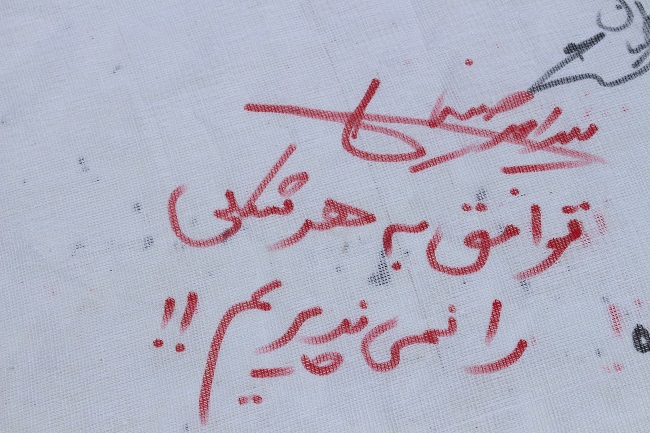 توافق به هر شکلی
را نمی پذیریم !!